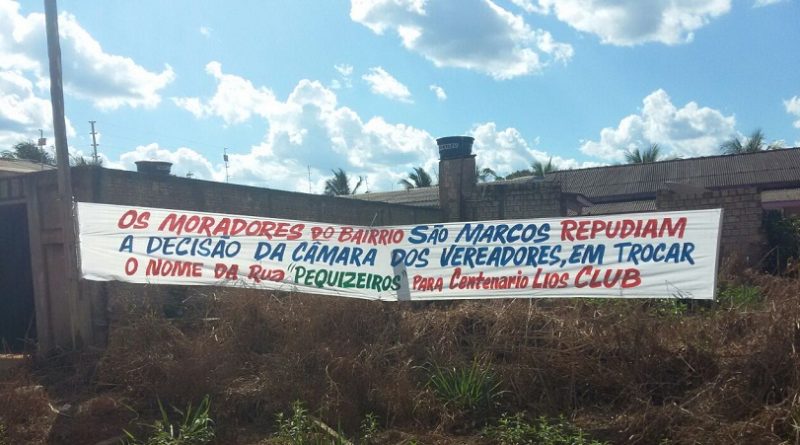 OS MORADORES DO BAIRRIO SÃO MARCOS REPUDIAM
A DECISÃO DA CÂMARA DOS VEREADORES, EM TROCAR
O NOME DA RUA "PEQUIZEIROS PARA CENTENARIO LIOS CLUB